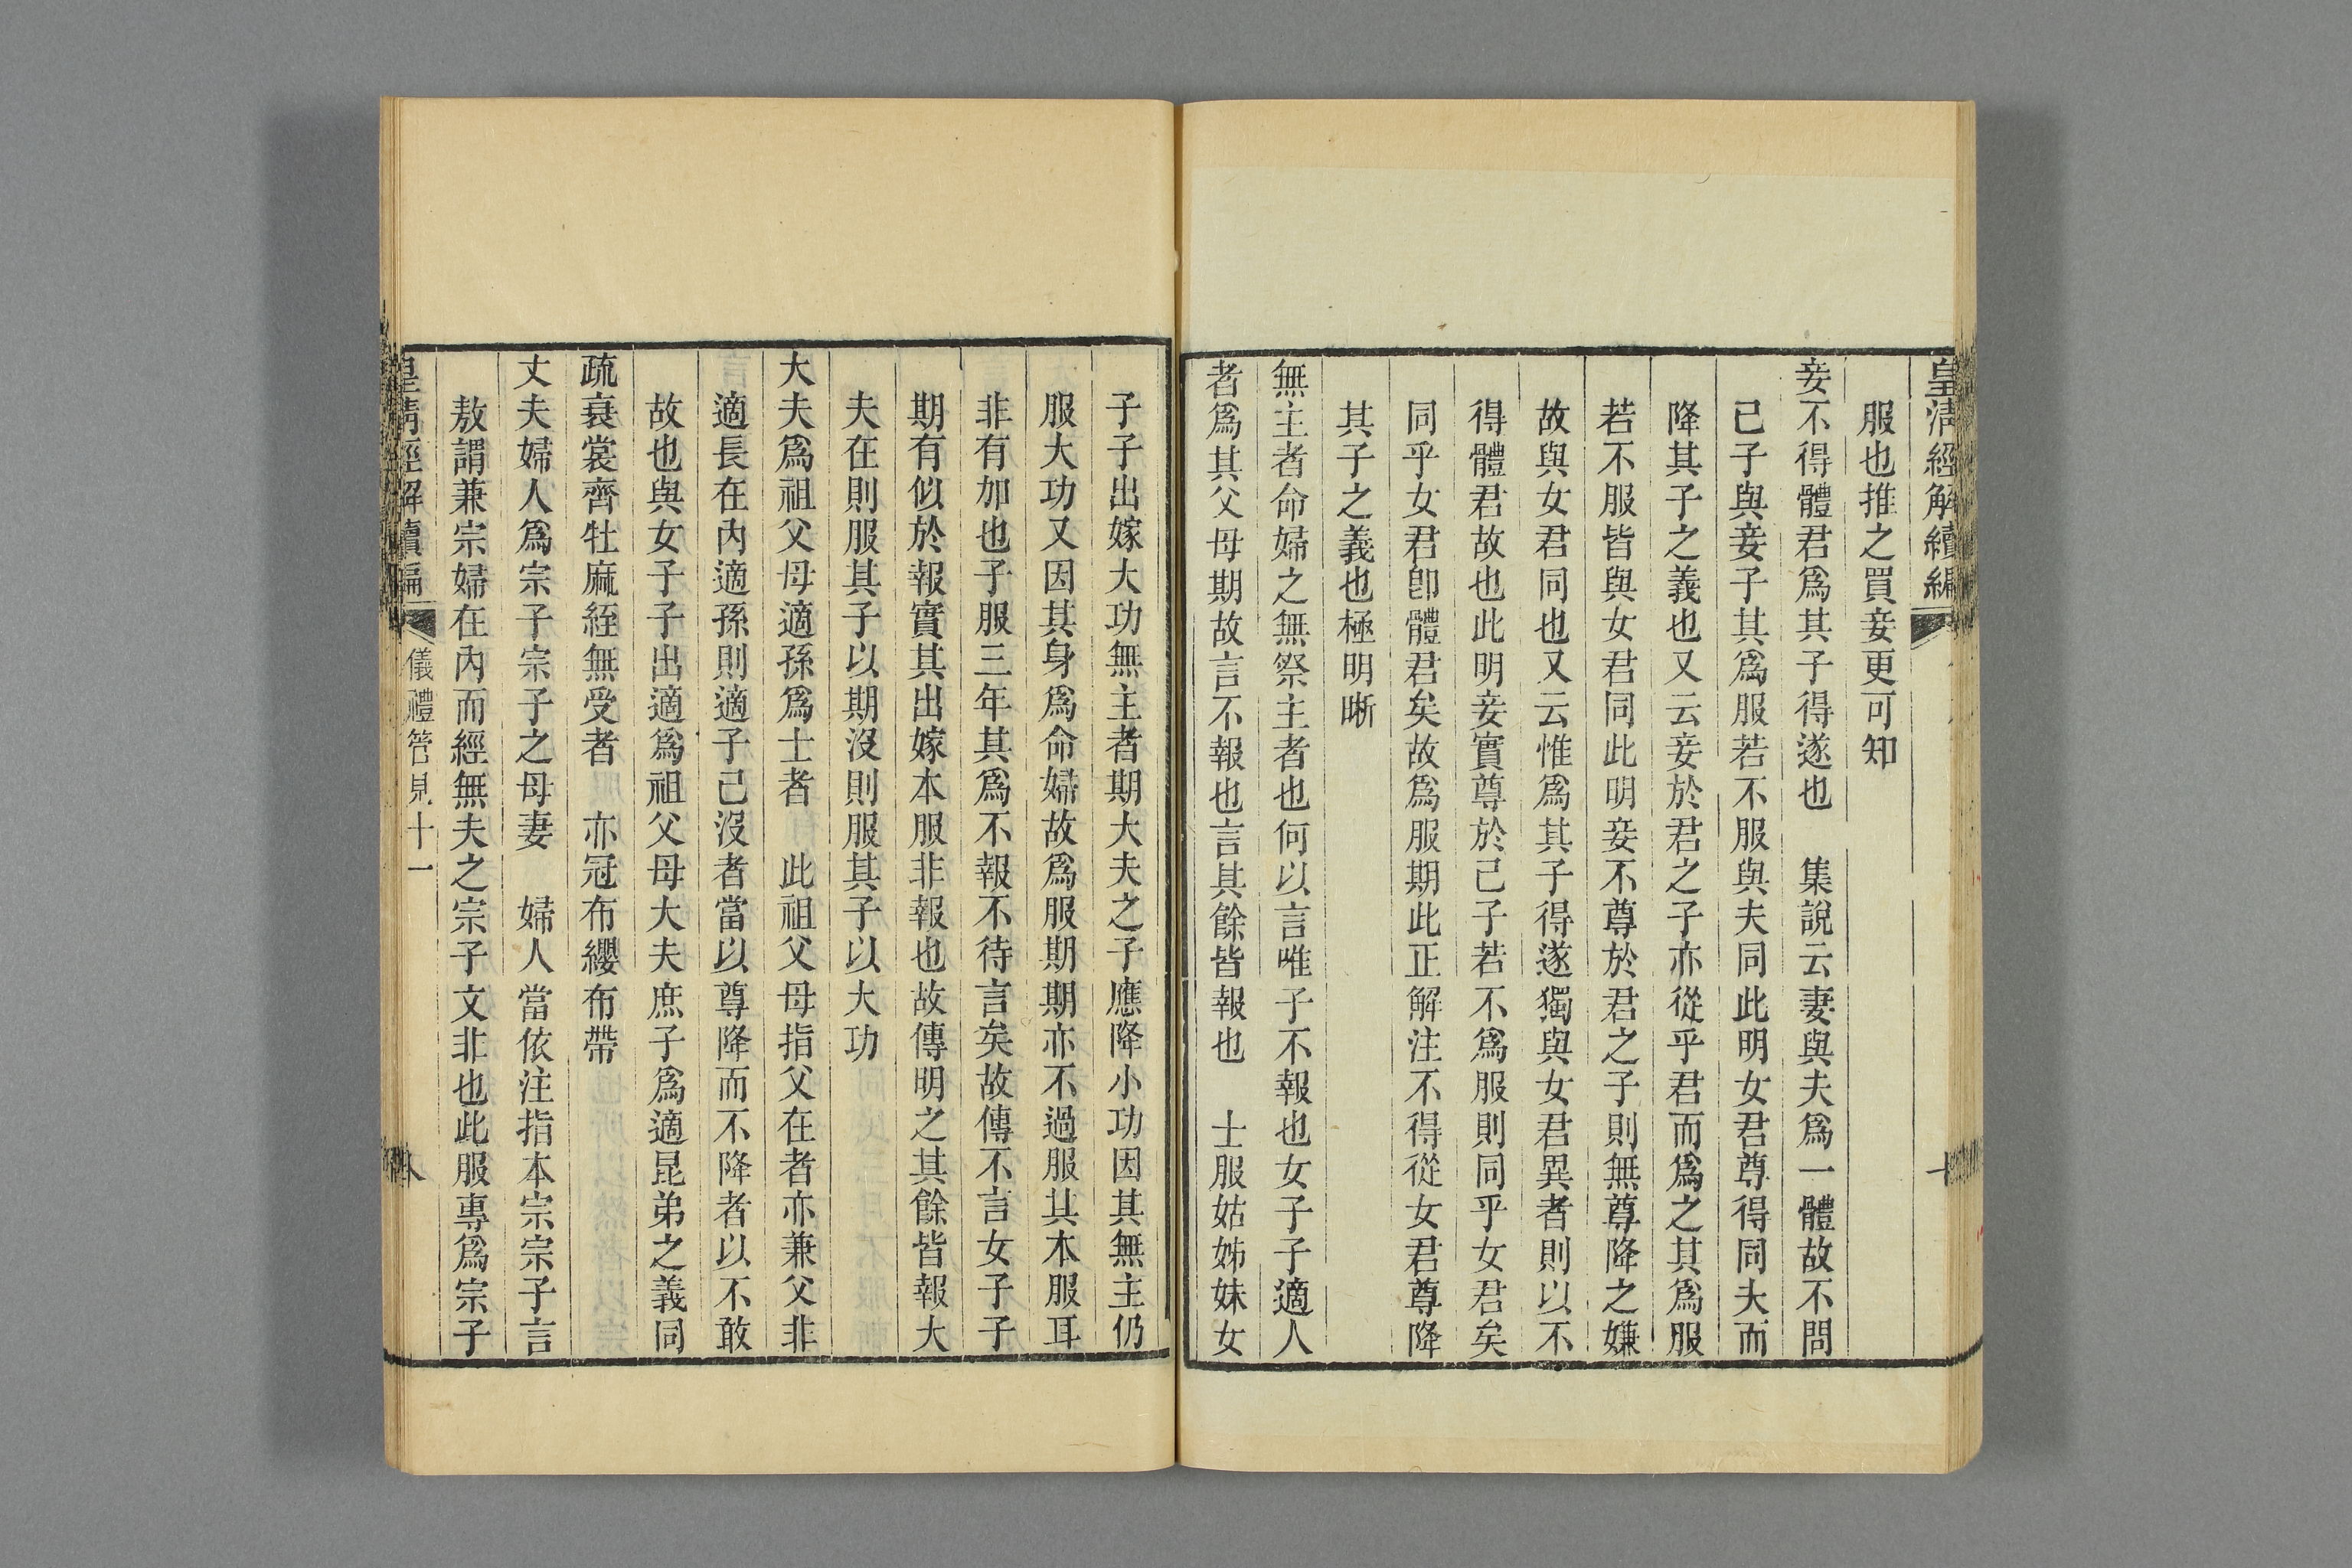 皇清經解續編
服也推之買妾更可知
妾不得體君爲其子得遂也　集說云妻與夫爲一體故不問
己子與妾子其爲服若不服與夫同此明女君尊得同夫而
降其子之義也又云妾於君之子亦從乎君而爲之其爲服
若不服皆與女君同此明妾不尊於君之子則無尊降之嫌
故與女君同也又云惟爲其子得遂獨與女君異者則以不
得體君故也此明妾實尊於己子若不爲服則同乎女君矣
同乎女君卽體君矣故爲服期此正解注不得從女君尊降
其子之義也極明晰
無主者命婦之無祭主者也何以言唯子不報也女子子適人
者爲其父母期故言不報也言其餘皆報也　士服姑姊妹女
子子出嫁大功無主者期大夫之子應降小功因其無主仍
服大功又因其身爲命婦故爲服期期亦不過服其本服耳
非有加也子服三年其爲不報不待言矣故傳不言女子子
期有似於報實其出嫁本服非報也故傳明之其餘皆報大
夫在則服其子以期沒則服其子以大功
大夫爲祖父母適孫爲士者　此祖父母指父在者亦兼父非
適長在內適孫則適子己沒者當以尊降而不降者以不敢
故也與女子子出適爲祖父母大夫庶子爲適昆弟之義同
疏衰裳齊牡麻絰無受者　亦冠布纓布帶
丈夫婦人爲宗子宗子之母妻　婦人當依注指本宗宗子言
敖謂兼宗婦在內而經無夫之宗子文非也此服專爲宗子
皇清經解續編　儀禮管見十一